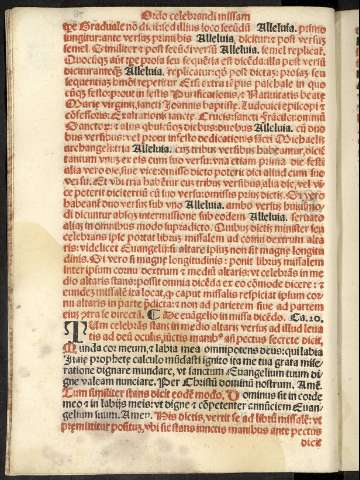 Ordo celebrandi missam
tpe Graduale nō dr: sed illius loco secūdū Alleluia. primo
iungitur: ante versus primus Alleluia. dicitur: et post versus
semel. Similiter et post secūdū versū Alleluia. semel replicat'.
Quocūqȝ aūt tpe prosa seu sequētia est dicēda. illa post versū
dicitur: anteqȝ Alleluia. replicatur: qd post dictas: prosas seu
sequentias hmōi repetitur
Marie virginis, sancti Joannis baptiste. Ludouici episcopi et
cōfessoris. Exaltationis sancte Crucis: sancti Francisci: omniū
Sanctorū: et aliis quibuscūqȝ diebus: duobus Alleluia. cū duo
bus versibus: vel prout in festis dedicationis sancti Michaelis
archangeli tria Alleluia. cum tribus versibus habeantur, dicit
tantum vnus ex eis cum suo versu: vna etiam prima die festi
alia vero die, siue vice: omisse dicto poterit dici aliud cum suo
versu. Et vbi tria habētur cum tribus versibus, alia die, vel vi-
ce poterit dici tertiū cū suo versu: omissis primis dictis. Si vero
habeant duo versus sub vno Alleluia. ambo versus huiusmo
di dicuntur absqȝ intermissione sub eodem Alleluia. seruato
alias in omnibus modo supradicto. Quibus dictis minister seu
celebrans ipse portat librum missalem ad cornu dextrum alta
ris: videlicet Euangelii si altare ipsum non sit magne longitu
dinis. Si vero sit magne longitudinis: ponit librum missalem
inter ipsum cornu dextrum et mediū altaris: vt celebrās in me
dio altaris stans: possit omnia dicenda ex eo cōmode dicere: et
eundem missalē ita locat, qȝ caput missalis respiciat ipsum cor-
nu altaris in parte predicta: et non ad parietem siue ad partem
eius extra se directā. De euāgelio in missa dicēdo. Ca. 10.
Tūm celebrās stans in medio altaris versus ad illud leua
tis ad deū oculis, iūctis manibus an pectus secrete dicit,
Munda cor meum, et labia mea omnipotens deus: qui labia
Isaie prophete calculo mūdasti ignito: ita me tua grata mise-
ratione dignare mundare, vt sanctum Euangelium tuum di-
gne valeam nunciare. Per Christū dominū nostrum. Amē.
Tum similiter stans dicit eodē modo. Dominus sit in corde
meo et in labiis meis: vt digne et cōpetenter annūciem Euan-
gelium suum. Amen. His dictis, vertit se ad librū missale: vt
premittitur positus, vbi sic stans iunctis manibus ante pectus
dicit